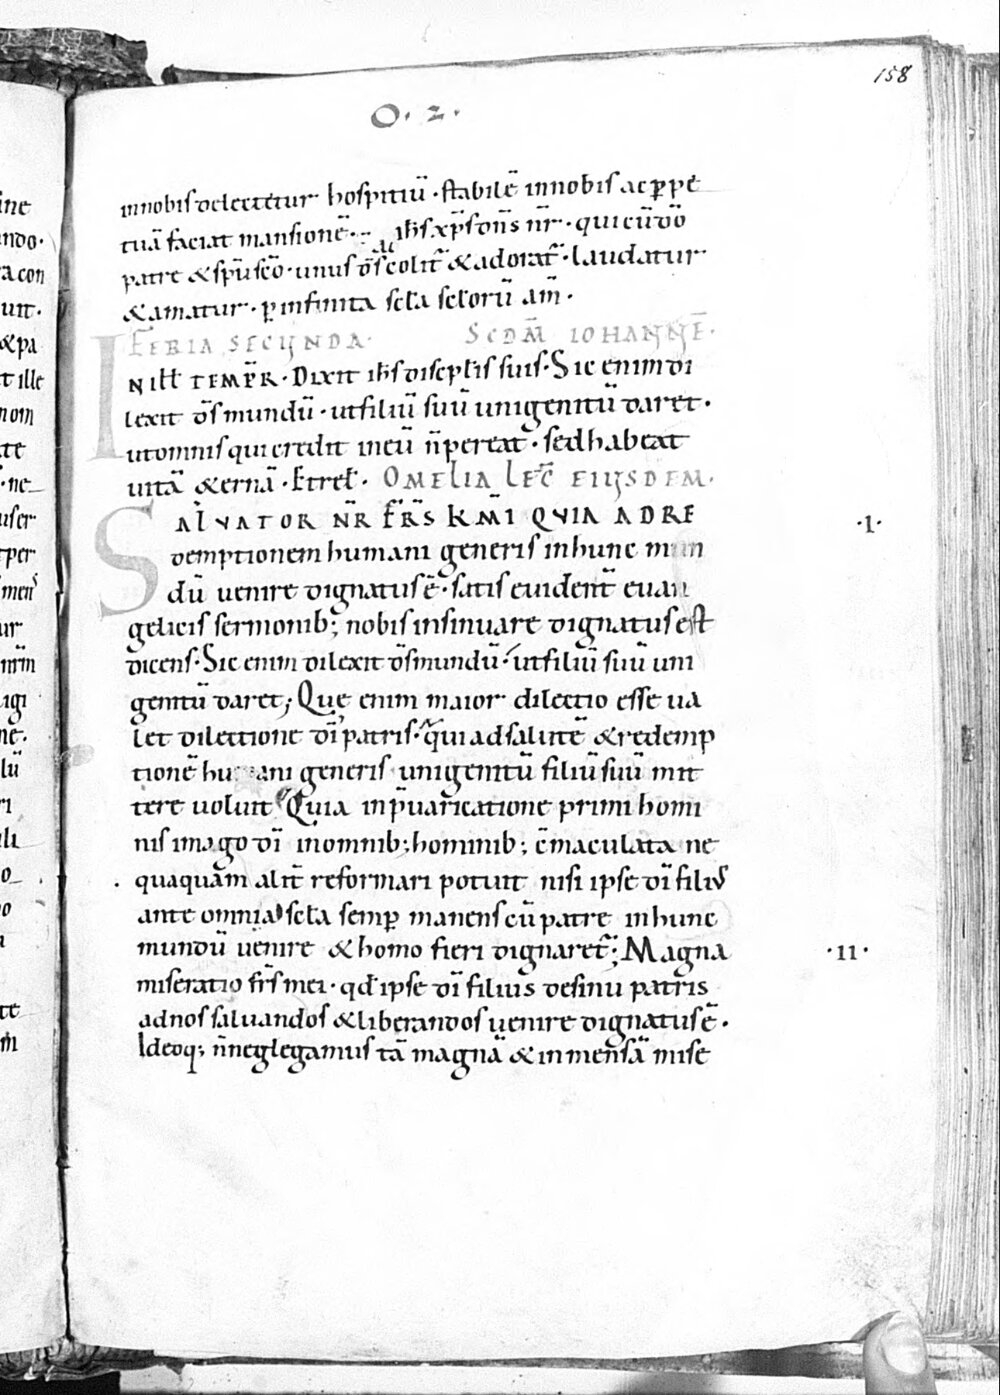 158
O. 2.
innobis delectetur hospitiū · stabilē innobis ac ꝑpe
tuā faciat mansionē · ac ih̅s xp̅s dn̅s nr̅ · qui cū dō
patre & spū sc̅o · unus ds̅ colit̅ & adorat̅ · laudatur
& amatur · ꝑ infinita scl̅a scl̅orū am̅ ·
FERIA SECUNDA · SCDM̅ IOHANNĒ ·
INILL̅ TEMPR̅ · Dixit ih̅s discipl̅is suis · Sic enim di
lexit ds̅ mundū · ut filiū suū unigenitū daret ·
ut omnis qui credit ineū n̅ pereat · sed habeat
uitā &ernā · Et rel̅ · OMELIA LEC̅ EIUSDEM ·
SALVATOR NR̅ FR̅S KM̅I QVIA AD RE
demptionem humani generis inhunc mun
dū uenire dignatus ē · satis euident̅ euan
gelicis sermonib; nobis insinuare dignatus est
dicens · Sic enim dilexit ds̅ mundū · ut filiū suū uni
genitū daret; Que enim maior dilectio esse ua
let dilectione dī patris · qui ad salutē & redemp
tionē humani generis unigenitū filiū suū mit
tere uoluit Quia in p̅uaricatione primi homi
nis imago dī inomnib; hominib; c̅maculata ne
quaquam alit̅ reformari potuit nisi ipse dī filius
ante omnia scl̅a semꝑ manens cū patre inhunc
mundū uenire & homo fieri dignaret̅; Magna
miseratio frs̅ mei · qd̅ ipse dī filius desinu patris
adnos saluandos & liberandos uenire dignatus ē ·
Ideoq; n̅ neglegamus tā magnā & inmensā mise
·I·
·II·